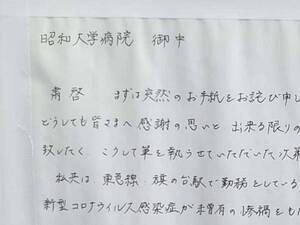 昭和大学病院 御中
粛啓 まずは突然のお手紙をお詫び申し
どうしても皆さまへ感謝の思いと、出来る限りの
致したく、こうして筆を執らせていただいた次第
私共は、東急線・旗の台駅で勤務としている
新型コロナウイルス感染症が未曽有の惨禍をもた